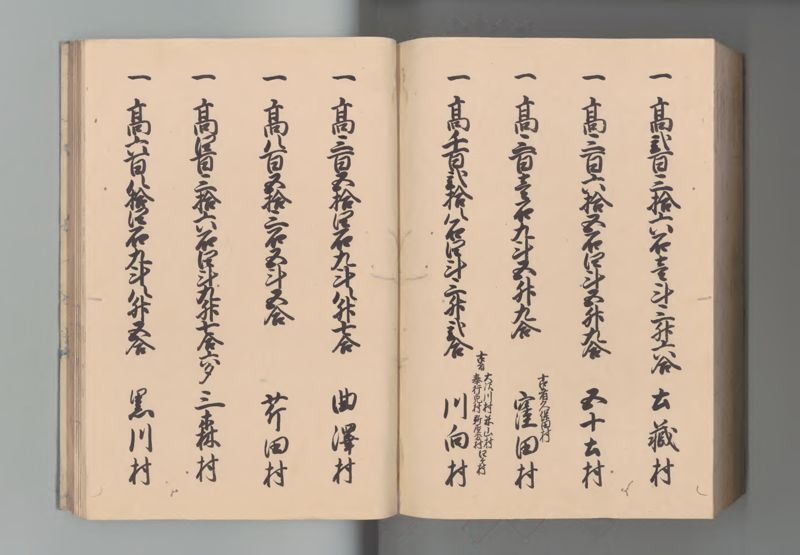 一 高弐百三拾六石壱斗三升六合 玄藏村
一 高三百六拾五石四斗五升九合 五十土村
一 高三百壱石九斗五升九合 窪田村
古者久保田村
一 高千百弐拾八石四斗三升弐合 川向村
古者
一 高三百五拾四石九斗八升七合 曲澤村
一 高八百五拾三石五斗五合 芹田村
一 高四百三拾六石四斗九升七合六夕 三森村
一 高六百八拾四石九斗八升五合 黒川村